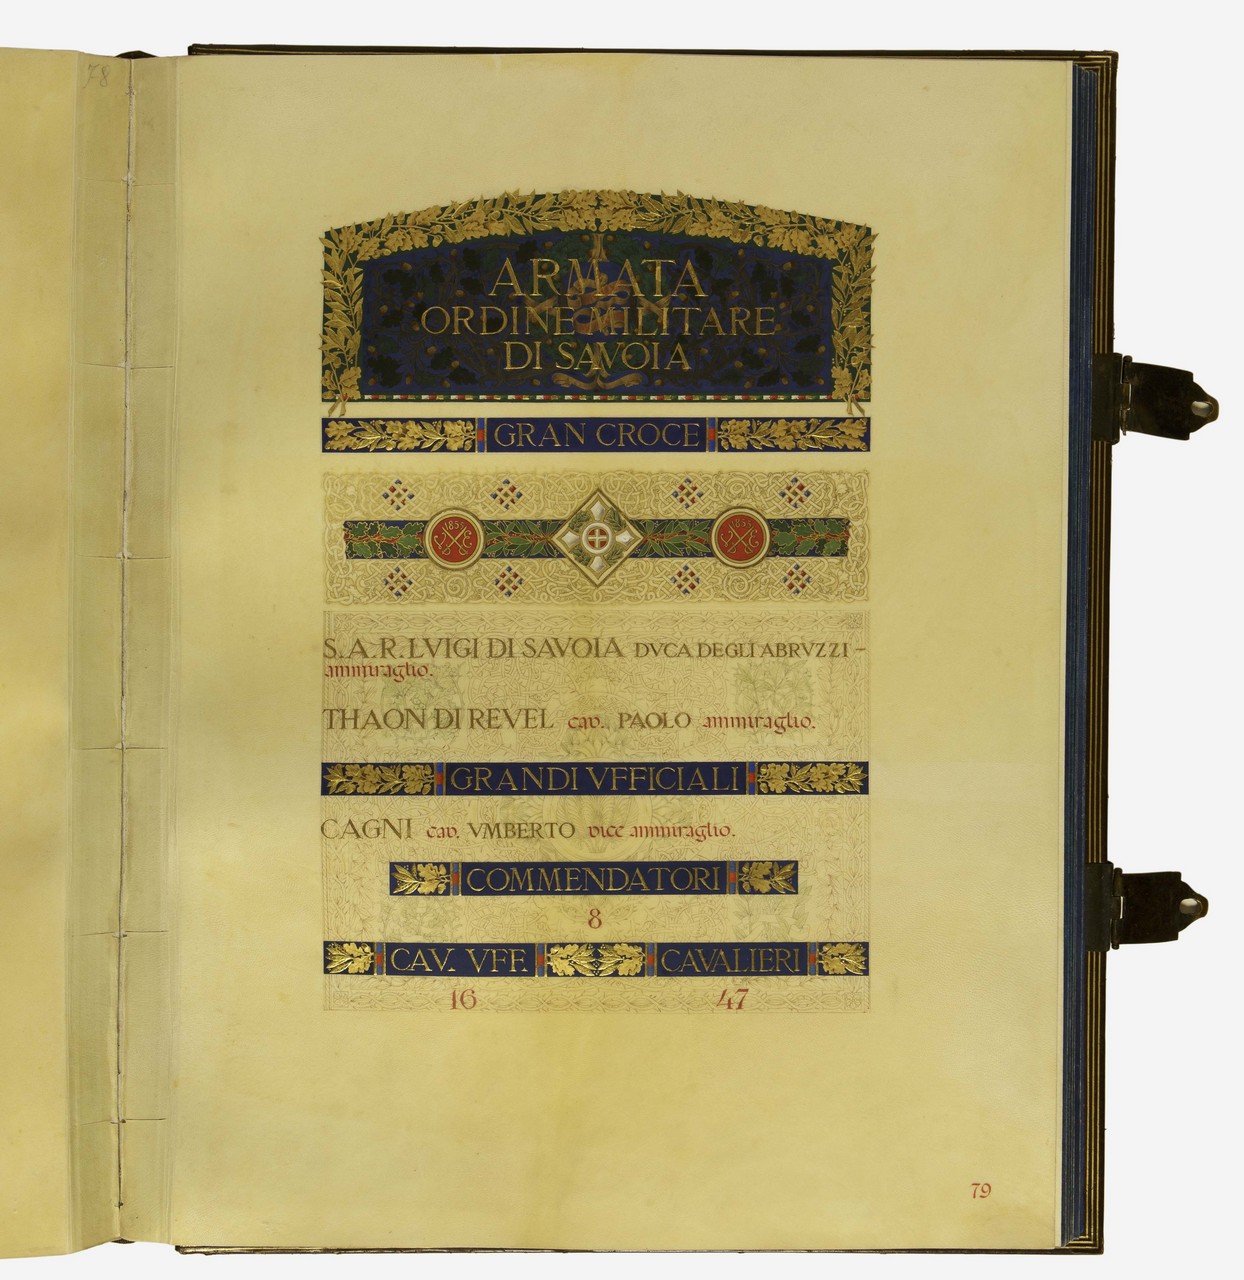 78
ARMATA
ORDINE MILITARE
DI SAVOIA
GRAN CROCE
1855 1855
S.A.R. LVIGI DI SAVOIA DVCA DEGLI ABRVZZI –
ammiraglio.
THAON DI REVEL cav. PAOLO ammiraglio.
GRANDI VFFICIALI
CAGNI cav. VMBERTO vice ammiraglio.
COMMENDATORI
8
CAV. VFF. CAVALIERI
16 47
79